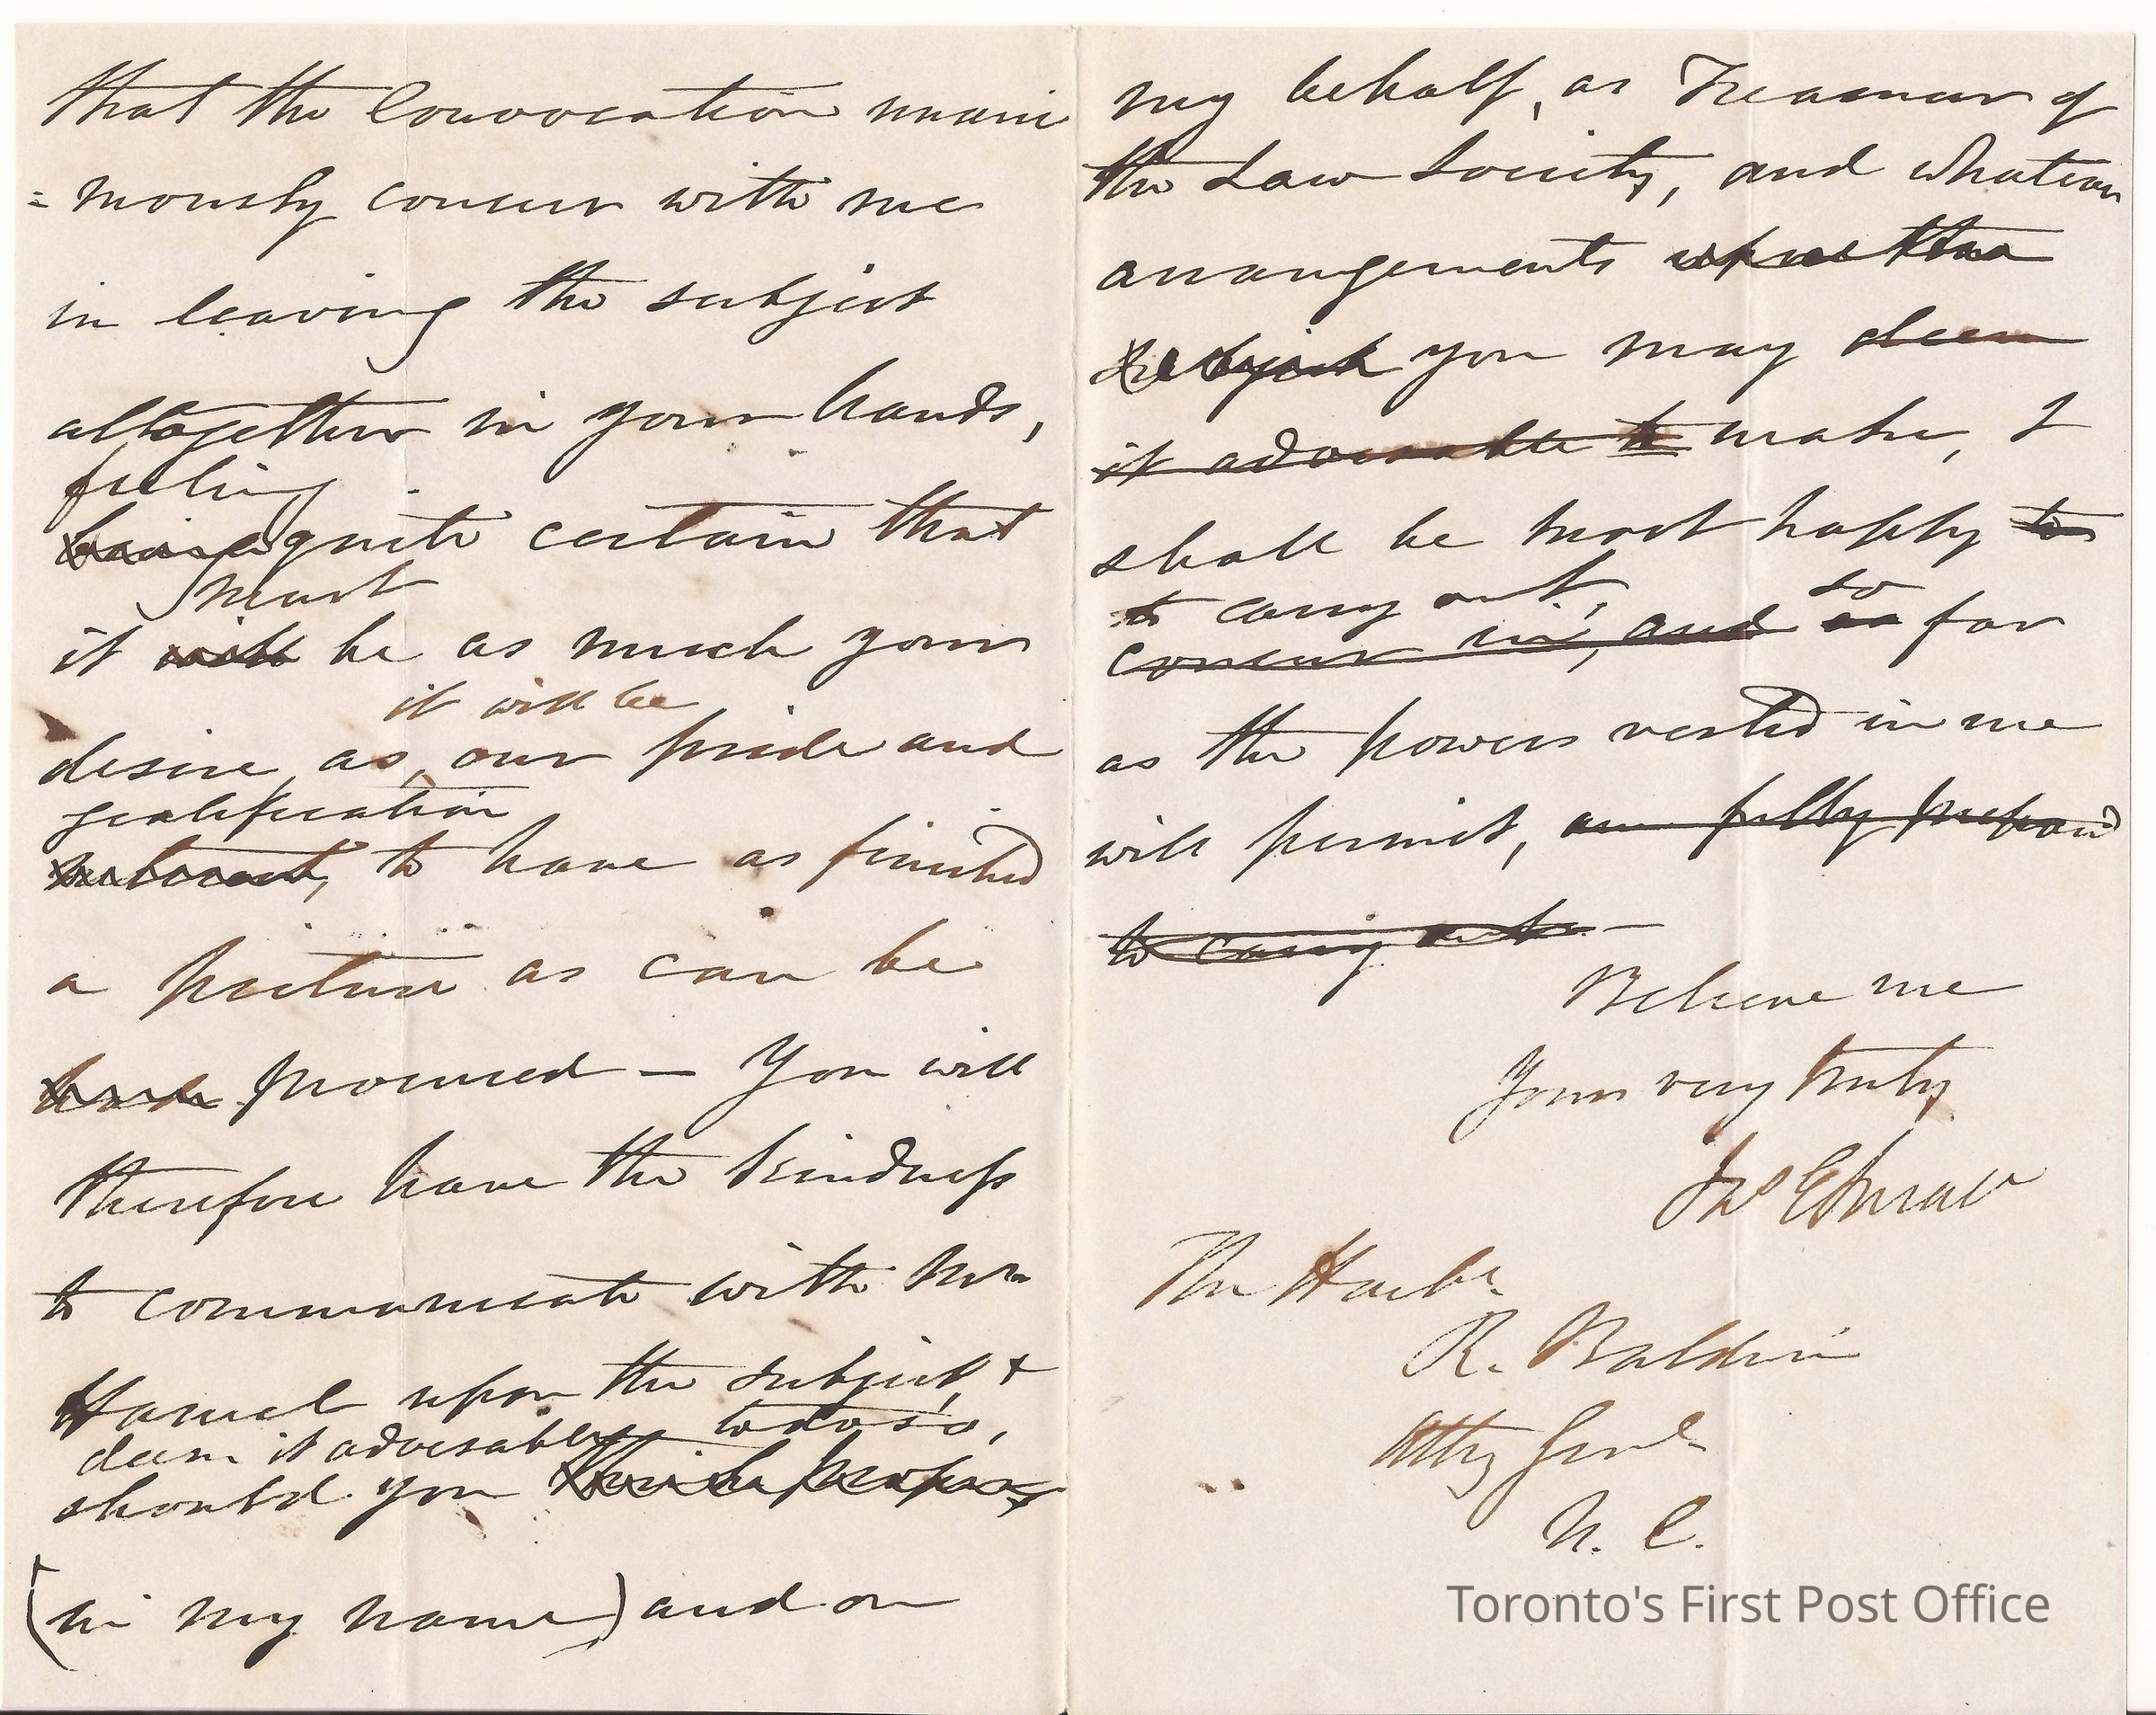 that the Convocation unani
= mously concur with me
in leaving the subject
altogether in your hands,
feeling
being quite certain that
must
it will be as much your
it will be
desire, as, our pride and
gratification
interest, to have as finished
a picture as can be
procured — You will
therefore have the kindness
to communicate with Mr
Hamel upon the subject, &
deem it advisable to do so,
should you think proper
(in my name) and on
my behalf, as Treasurer of
the Law Society, and whatever
arrangements upon the
subject you may deem
it advisable to make, I
shall be most happy to
to carry out, so
concur in, and as far
as the powers vested in me
will permit, am fully prepared
to carry out —
Believe me
Yours very truly
The Honble.
R. Baldwin
Atty Genl
U. C.
Toronto's First Post Office